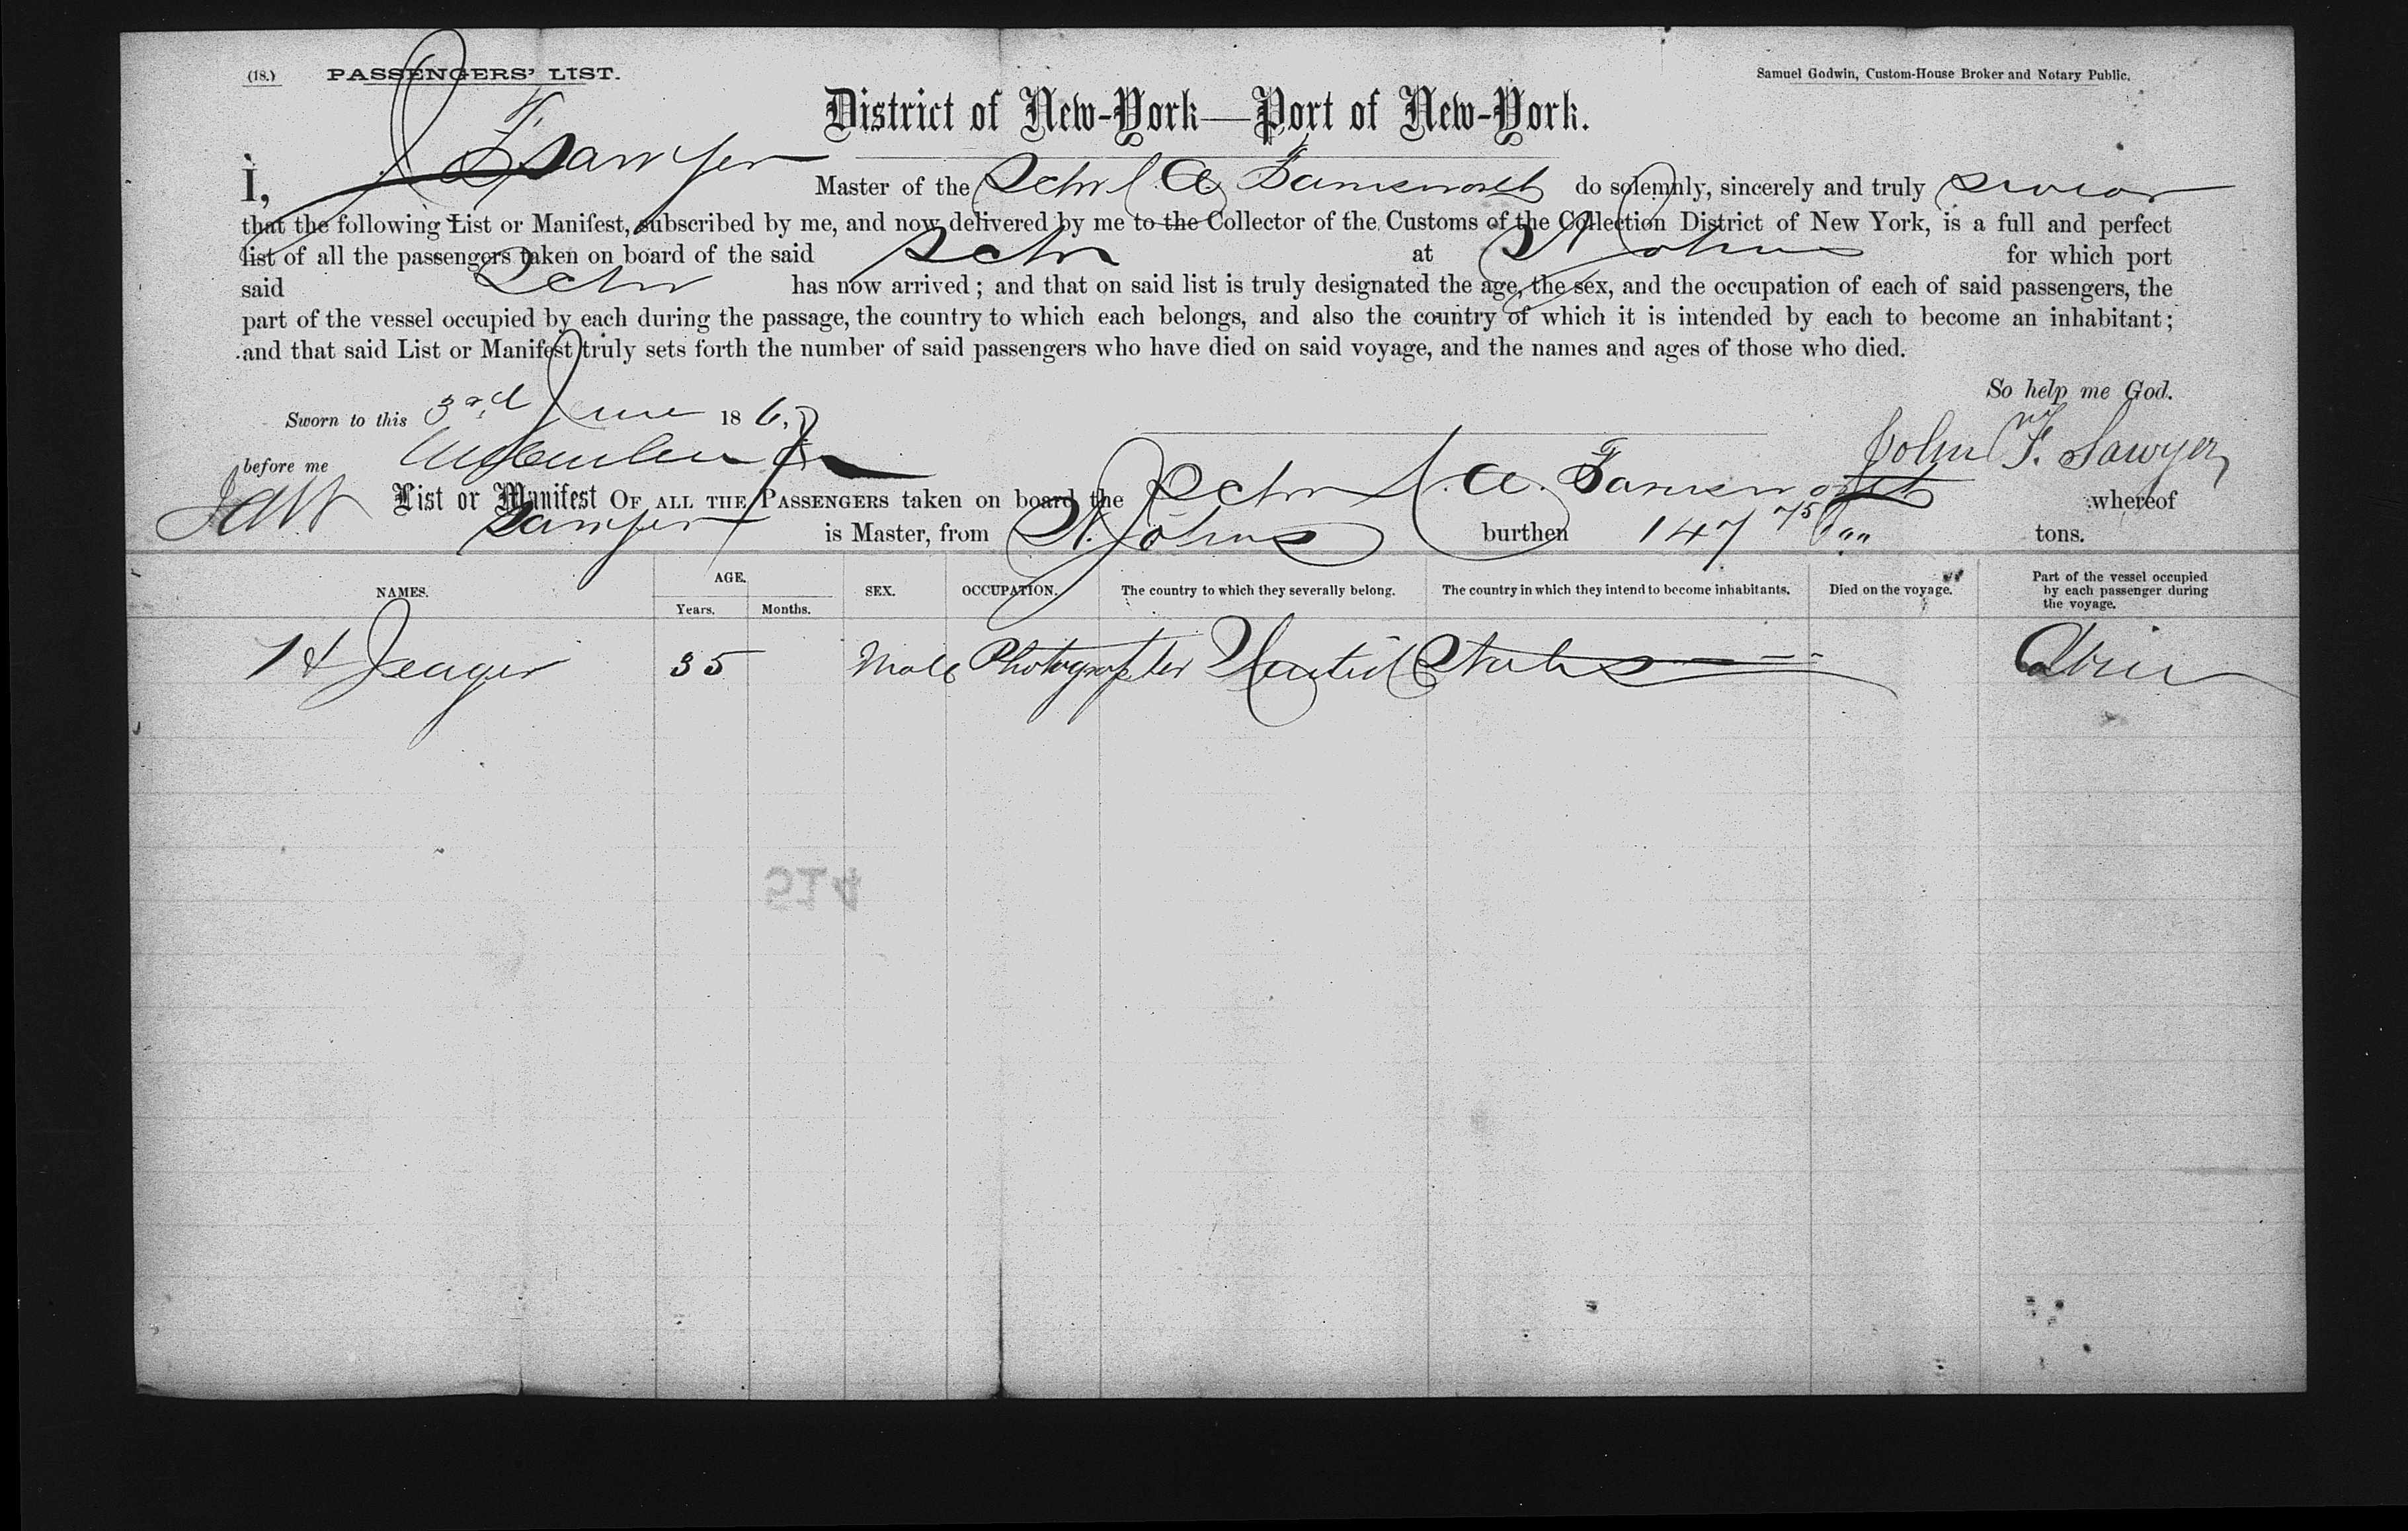 (18.) PASSENGERS' LIST.
Samuel Godwin, Custom-House Broker and Notary Public.
District of New-York—Port of New-York.
I, J F Sawyer Master of the Schr A Farnsworth do solemnly, sincerely and truly swear
that the following List or Manifest, subscribed by me, and now delivered by me to the Collector of the Customs of the Collection District of New York, is a full and perfect
list of all the passengers taken on board of the said Schr at St Johns for which port
said Schr has now arrived; and that on said list is truly designated the age, the sex, and the occupation of each of said passengers, the
part of the vessel occupied by each during the passage, the country to which each belongs, and also the country of which it is intended by each to become an inhabitant;
and that said List or Manifest truly sets forth the number of said passengers who have died on said voyage, and the names and ages of those who died.
So help me God.
Sworn to this 3rd June 186
before me
John F. Sawyer
List or Manifest OF ALL THE PASSENGERS taken on board the Schr A. Farnsworth whereof
Sawyer is Master, from St. Johns burthen 147 75 tons.
NAMES. AGE. Years. Months. SEX. OCCUPATION. The country to which they severally belong. The country in which they intend to become inhabitants. Died on the voyage. Part of the vessel occupied by each passenger during the voyage.
H Jeager 35 Male Photographer United States Cabin
514